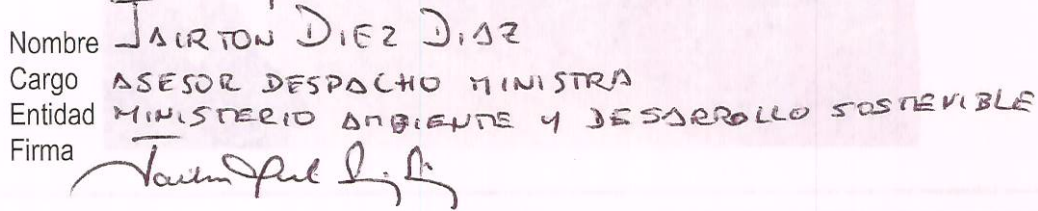 Nombre JAIRTON DIEZ DIAZ
Cargo ASESOR DESPACHO MINISTRA
Entidad MINISTERIO AMBIENTE Y DESARROLLO SOSTENIBLE
Firma